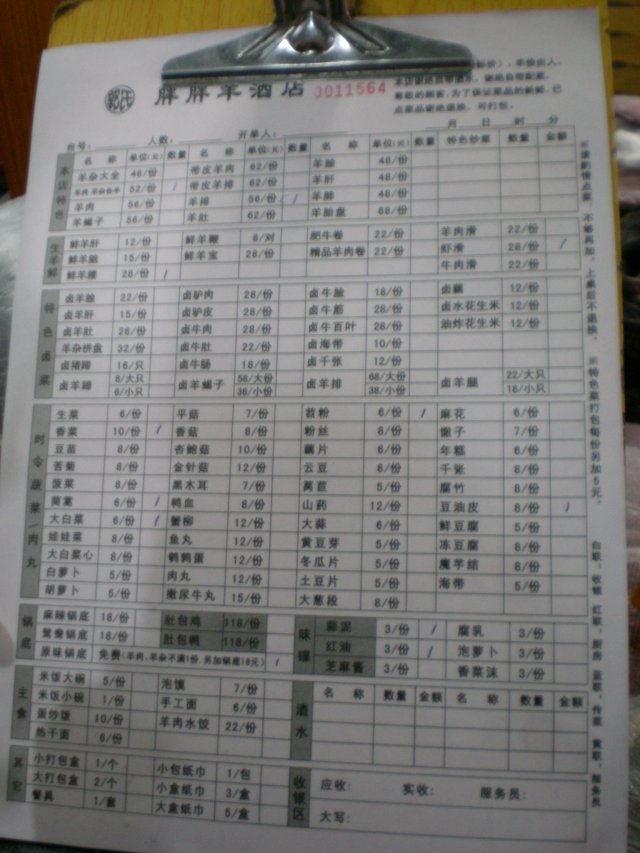 郭氏 胖胖羊酒店 0011564
点菜品谢绝退换，可打包。
台号： 人数： 开单人： 月 日 时 分
本店特色
名 称 单位(元) 数量 名 称 单位(元) 数量 名 称 单位(元) 数量 特色炒菜 数量 金额
羊杂大全 48/份 带皮羊肉 62/份 羊脸 48/份
52/份 带皮羊排 62/份 羊肝 48/份
羊肉 56/份 羊排 56/份 48/份
羊蝎子 56/份 羊肚 62/份 羊胎盘 68/份
生羊鲜
鲜羊肝 12/份 鲜羊鞭 6/对 肥牛卷 22/份 羊肉滑 22/份
15/份 鲜羊宝 28/份 精品羊肉卷 22/份 虾滑 28/份
鲜羊腰 28/份 牛肉滑 22/份
特色卤菜
卤羊脸 22/份 卤驴肉 28/份 18/份 卤藕 12/份
卤羊肝 15/份 卤驴皮 28/份 卤牛筋 28/份 卤水花生米 12/份
卤羊肚 28/份 卤牛肉 28/份 卤牛百叶 28/份 油炸花生米 12/份
羊杂拼盘 32/份 卤牛肚 22/份 卤海带 10/份
卤猪蹄 16/只 卤牛肠 18/份 卤千张 12/份
卤羊蹄 8/大只 6/小只 卤羊蝎子 58/大份 38/小份 卤羊排 68/大份 38/小份 卤羊腿 22/大只 18/小只
时令蔬菜/肉丸
生菜 6/份 平菇 7/份 苕粉 6/份 麻花 6/份
香菜 10/份 香菇 8/份 粉丝 8/份 馓子 7/份
豆苗 8/份 杏鲍菇 10/份 藕片 6/份 年糕 6/份
苦菊 8/份 金针菇 12/份 云豆 8/份 千张 8/份
菠菜 8/份 黑木耳 7/份 莴苣 5/份 腐竹 8/份
茼蒿 6/份 鸭血 8/份 山药 12/份 豆油皮 8/份
大白菜 6/份 蟹柳 12/份 大蒜 6/份 鲜豆腐 5/份
娃娃菜 8/份 鱼丸 12/份 黄豆芽 5/份 冻豆腐 8/份
大白菜心 8/份 鹌鹑蛋 12/份 冬瓜片 5/份 魔芋结 8/份
白萝卜 5/份 肉丸 12/份 土豆片 5/份 海带 5/份
胡萝卜 5/份 撒尿牛丸 15/份 大葱段 8/份
锅底
麻辣锅底 18/份 肚包鸡 118/份
鸳鸯锅底 18/份 肚包鸭 118/份
原味锅底 免费(羊肉、羊杂不满1份，另加锅底18元)
味碟
蒜泥 3/份 腐乳 3/份
红油 3/份 泡萝卜 3/份
芝麻酱 3/份 香菜沫 3/份
主食
米饭大碗 5/份 泡馍 7/份
米饭小碗 1/份 手工面 6/份
蛋炒饭 10/份 羊肉水饺 22/份
热干面 6/份
酒水
名 称 数量 金额 名 称 数量 金额
其它
小打包盒 1/个 小包纸巾 1/包
大打包盒 2/个 小盒纸巾 3/盒
餐具 1/套 大盒纸巾 5/盒
收银区
应收： 实收： 服务员：
大写：
※特色菜打包每份另加5元。
白联：收银 红联：厨房 蓝联：传菜 黄联：服务员